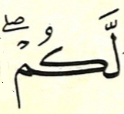 لَّكُمْ ۖ